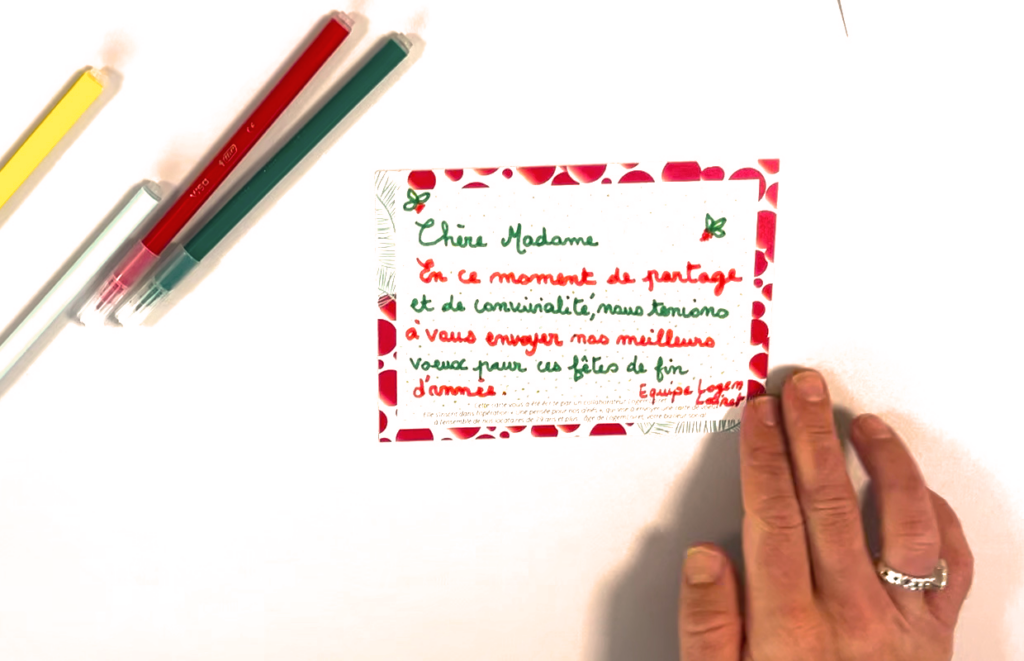 Chère Madame
En ce moment de partage
et de convivialité, nous tenions
à vous envoyer nos meilleurs
voeux pour ces fêtes de fin
d'année.
Equipe Logem